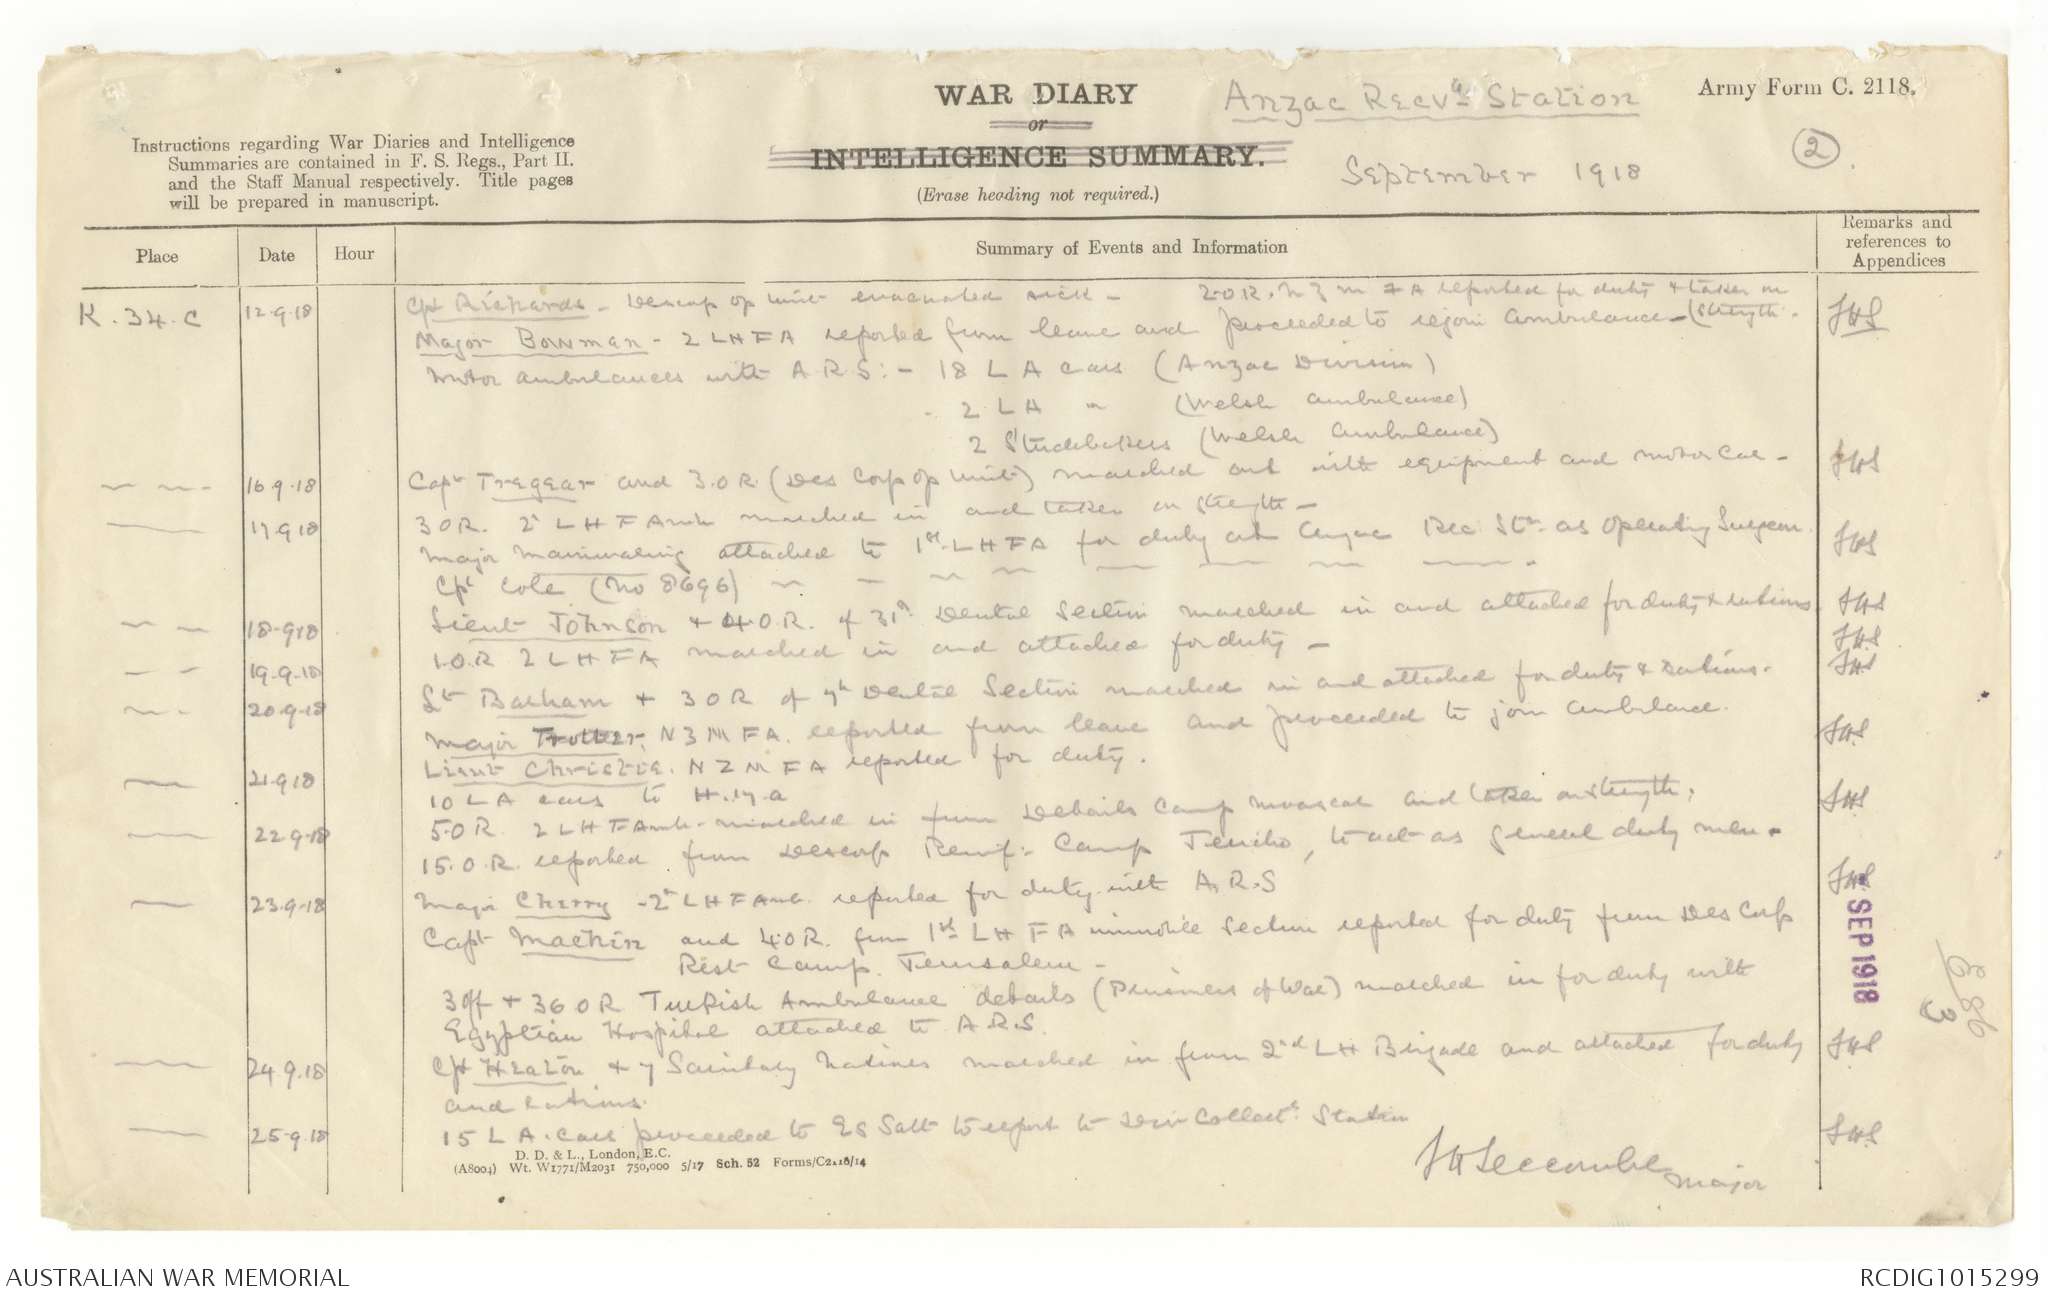 WAR DIARY
or
INTELLIGENCE SUMMARY.
(Erase heading not required.)
Anzac Recvg Station
September 1918
Army Form C. 2118.
2
Instructions regarding War Diaries and Intelligence
Summaries are contained in F. S. Regs., Part II.
and the Staff Manual respectively. Title pages
will be prepared in manuscript.
Place Date Hour Summary of Events and Information Remarks and references to Appendices
K.34.C 12.9.18 Cpt Richards - Descorp op unit evacuated sick - 2 O.R. N Z M F A reported for duty & taken on strength. JHS
Major Bowman - 2 LHFA reported from leave and proceeded to rejoin ambulance -
Motor ambulances with A.R.S:- 18 L A cars (Anzac Division)
2 L A " (Welsh Ambulance)
2 Studebakers (Welsh Ambulance)
16.9.18 Capt Tregear and 3.O.R. (Des Corp op Unit) marched out with equipment and motor car - JHS
17.9.18 3 OR. 2nd LHFAmb marched in and taken on strength -
Major Mainwaring attached to 1st LHFA for duty at Anzac Rec. Stn as Operating Surgeon. JHS
Cpt Cole (No 8696)
18.9.18 Lieut Johnson + 4.O.R. of 31st Dental Section marched in and attached for duty & rations JHS
19.9.18 1.O.R 2 LHFA marched in and attached for duty - JHS
20.9.18 Lt Barham + 3 OR of 7th Dental Section marched in and attached for duty & rations. JHS
Major Trotter, NZMFA. reported from leave and proceeded to join ambulance.
Lieut Christie. NZMFA reported for duty. JHS
21.9.18 10 LA cars to H.17.a
22.9.18 5.O.R. 2 LHFAmb. marched in from Details Camp Moascar and taken on strength. JHS
15.O.R. reported from Descorp Reinf: Camp Jericho, to act as general duty men.
23.9.18 Major Cherry - 2nd LHFAmb. reported for duty with A.R.S JHS
Capt Machin and 4.O.R. from 1st LHFA immobile section reported for duty from Des Corp
Rest Camp. Jerusalem -
3 Off + 36 OR Turkish Ambulance details (Prisoners of War) marched in for duty with
Egyptian Hospital attached to A.R.S.
24.9.18 Cpt Heaton + 7 Sanitary Natives marched in from 2nd LH Brigade and attached for duty JHS
and rations.
25.9.18 15 L A. Cars proceeded to Es Salt to report to Div Collectg Station JHS
SEP 1918
JHSeccombe
Major
D. D. & L., London, E.C.
(A8004) Wt. W1771/M2031 750,000 5/17 Sch. 52 Forms/C2118/14
AUSTRALIAN WAR MEMORIAL
RCDIG1015299